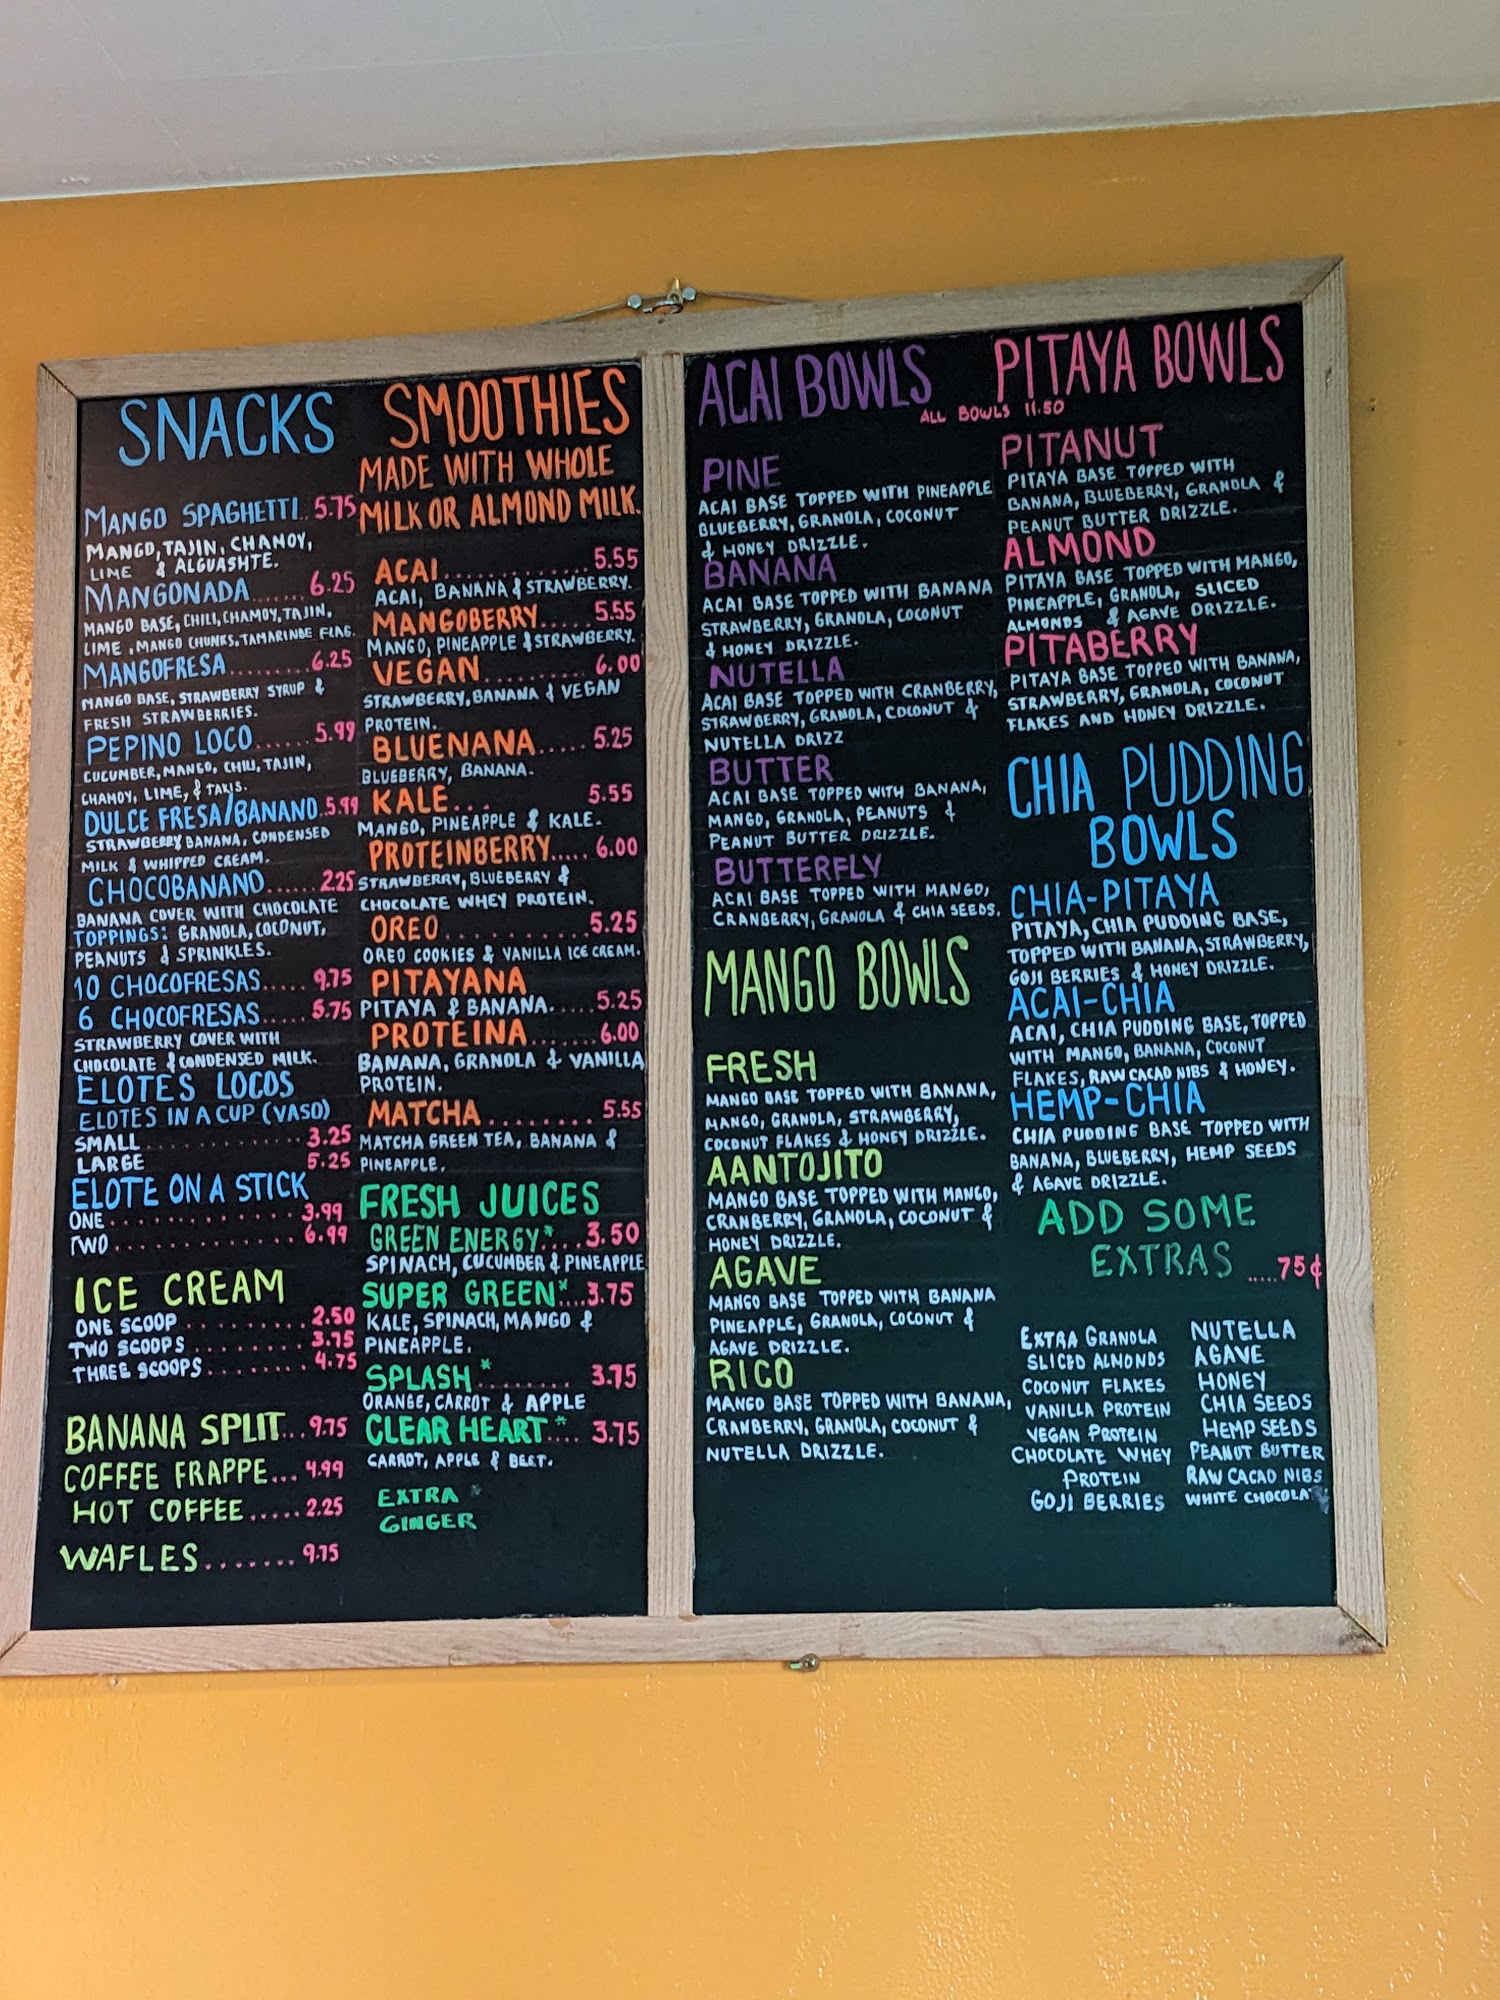 SNACKS
MANGO SPAGHETTI.. 5.75
MANGO, TAJIN, CHAMOY,
LIME & ALGUASHTE.
MANGONADA....... 6.25
MANGO BASE, CHILI, CHAMOY, TAJIN,
LIME, MANGO CHUNKS, TAMARINDE FLAG.
MANGOFRESA.........6.25
MANGO BASE, STRAWBERRY SYRUP &
FRESH STRAWBERRIES.
PEPINO LOCO....... 5.99
CUCUMBER, MANGO, CHILI, TAJIN,
CHAMOY, LIME, & TAKIS.
DULCE FRESA/BANANO..5.99
STRAWBERRY BANANA, CONDENSED
MILK & WHIPPED CREAM.
CHOCOBANANO...... 2.25
BANANA COVER WITH CHOCOLATE
TOPPINGS: GRANOLA, COCONUT,
PEANUTS & SPRINKLES.
10 CHOCOFRESAS..... 9.75
6 CHOCOFRESAS..... 5.75
STRAWBERRY COVER WITH
CHOCOLATE & CONDENSED MILK.
ELOTES LOCOS
ELOTES IN A CUP (VASO)
SMALL............... 3.25
LARGE............... 5.25
ELOTE ON A STICK
ONE............... 3.99
TWO............... 6.99
ICE CREAM
ONE SCOOP.......... 2.50
TWO SCOOPS......... 3.75
THREE SCOOPS........ 4.75
BANANA SPLIT...9.75
COFFEE FRAPPE... 4.99
HOT COFFEE.....2.25
WAFLES........ 9.75
SMOOTHIES
MADE WITH WHOLE
MILK OR ALMOND MILK.
ACAI............ 5.55
ACAI, BANANA & STRAWBERRY.
MANGOBERRY..... 5.55
MANGO, PINEAPPLE & STRAWBERRY.
VEGAN.......... 6.00
STRAWBERRY, BANANA & VEGAN
PROTEIN.
BLUENANA..... 5.25
BLUEBERRY, BANANA.
KALE... 5.55
MANGO, PINEAPPLE & KALE.
PROTEINBERRY..... 6.00
STRAWBERRY, BLUEBERRY &
CHOCOLATE WHEY PROTEIN.
OREO.......... 5.25
OREO COOKIES & VANILLA ICE CREAM.
PITAYANA
PITAYA & BANANA.....5.25
PROTEINA.......6.00
BANANA, GRANOLA & VANILLA
PROTEIN.
MATCHA......... 5.55
MATCHA GREEN TEA, BANANA &
PINEAPPLE.
FRESH JUICES
GREEN ENERGY*....3.50
SPINACH, CUCUMBER & PINEAPPLE
SUPER GREEN*....3.75
KALE, SPINACH, MANGO &
PINEAPPLE.
SPLASH*........ 3.75
ORANGE, CARROT & APPLE
CLEAR HEART*.... 3.75
CARROT, APPLE & BEET.
EXTRA *
GINGER
ACAI BOWLS
PITAYA BOWLS
ALL BOWLS 11.50
PINE
ACAI BASE TOPPED WITH PINEAPPLE
BLUEBERRY, GRANOLA, COCONUT
& HONEY DRIZZLE.
BANANA
ACAI BASE TOPPED WITH BANANA
STRAWBERRY, GRANOLA, COCONUT
& HONEY DRIZZLE.
NUTELLA
ACAI BASE TOPPED WITH CRANBERRY,
STRAWBERRY, GRANOLA, COCONUT &
NUTELLA DRIZZ
BUTTER
ACAI BASE TOPPED WITH BANANA,
MANGO, GRANOLA, PEANUTS &
PEANUT BUTTER DRIZZLE.
BUTTERFLY
ACAI BASE TOPPED WITH MANGO,
CRANBERRY, GRANOLA & CHIA SEEDS.
MANGO BOWLS
FRESH
MANGO BASE TOPPED WITH BANANA,
MANGO, GRANOLA, STRAWBERRY,
COCONUT FLAKES & HONEY DRIZZLE.
AANTOJITO
MANGO BASE TOPPED WITH MANGO,
CRANBERRY, GRANOLA, COCONUT &
HONEY DRIZZLE.
AGAVE
MANGO BASE TOPPED WITH BANANA
PINEAPPLE, GRANOLA, COCONUT &
AGAVE DRIZZLE.
RICO
MANGO BASE TOPPED WITH BANANA,
CRANBERRY, GRANOLA, COCONUT &
NUTELLA DRIZZLE.
PITANUT
PITAYA BASE TOPPED WITH
BANANA, BLUEBERRY, GRANOLA &
PEANUT BUTTER DRIZZLE.
ALMOND
PITAYA BASE TOPPED WITH MANGO,
PINEAPPLE, GRANOLA, SLICED
ALMONDS & AGAVE DRIZZLE.
PITABERRY
PITAYA BASE TOPPED WITH BANANA,
STRAWBERRY, GRANOLA, COCONUT
FLAKES AND HONEY DRIZZLE.
CHIA PUDDING
BOWLS
CHIA-PITAYA
PITAYA, CHIA PUDDING BASE,
TOPPED WITH BANANA, STRAWBERRY,
GOJI BERRIES & HONEY DRIZZLE.
ACAI-CHIA
ACAI, CHIA PUDDING BASE, TOPPED
WITH MANGO, BANANA, COCONUT
FLAKES, RAW CACAO NIBS & HONEY.
HEMP-CHIA
CHIA PUDDING BASE TOPPED WITH
BANANA, BLUEBERRY, HEMP SEEDS
& AGAVE DRIZZLE.
ADD SOME
EXTRAS.....75¢
EXTRA GRANOLA
SLICED ALMONDS
COCONUT FLAKES
VANILLA PROTEIN
VEGAN PROTEIN
CHOCOLATE WHEY
PROTEIN
GOJI BERRIES
NUTELLA
AGAVE
HONEY
CHIA SEEDS
HEMP SEEDS
PEANUT BUTTER
RAW CACAO NIBS
WHITE CHOCOLAT